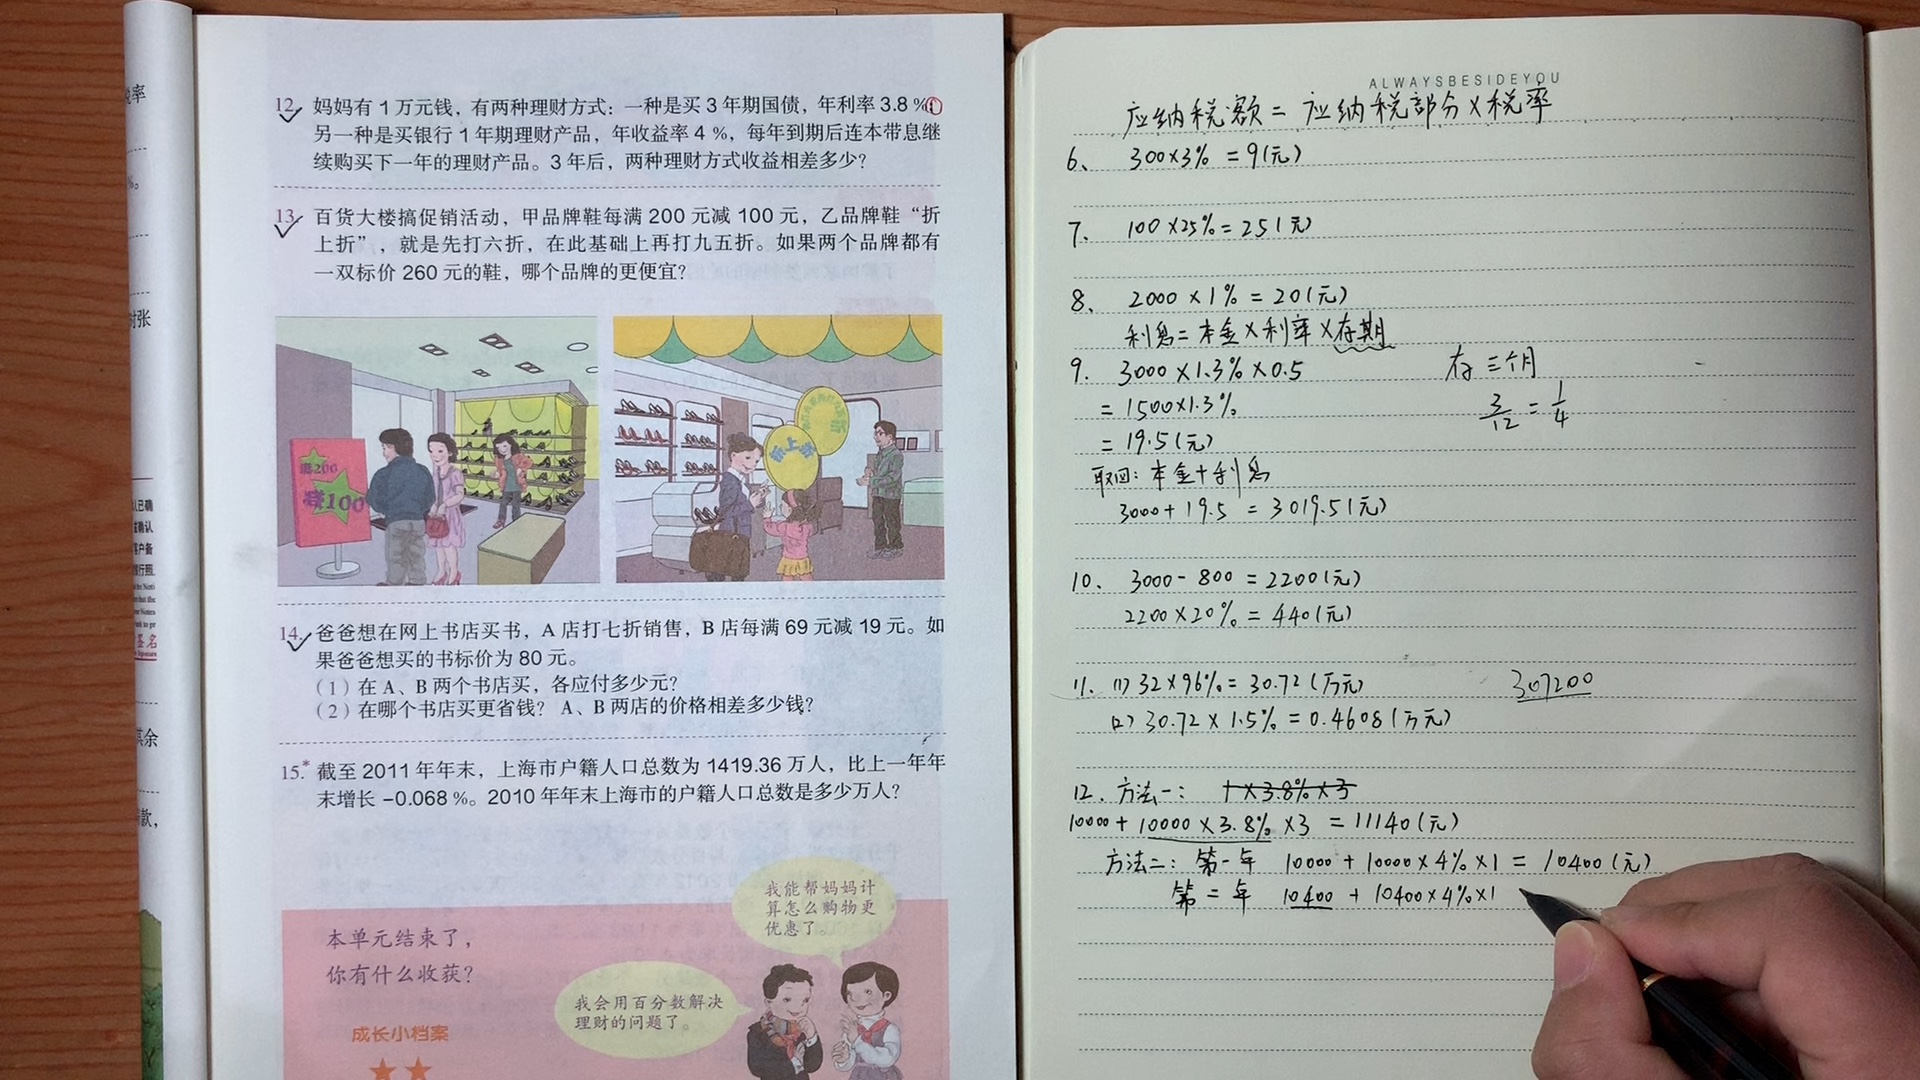 率
%。
对张
人已确
签名
其余
款，
12. 妈妈有 1 万元钱，有两种理财方式：一种是买 3 年期国债，年利率 3.8 %；
另一种是买银行 1 年期理财产品，年收益率 4 %，每年到期后连本带息继
续购买下一年的理财产品。3 年后，两种理财方式收益相差多少？
13. 百货大楼搞促销活动，甲品牌鞋每满 200 元减 100 元，乙品牌鞋“折
上折”，就是先打六折，在此基础上再打九五折。如果两个品牌都有
一双标价 260 元的鞋，哪个品牌的更便宜？
满200
减100
折上折
14. 爸爸想在网上书店买书，A 店打七折销售，B 店每满 69 元减 19 元。如
果爸爸想买的书标价为 80 元。
（1）在 A、B 两个书店买，各应付多少元？
（2）在哪个书店买更省钱？ A、B 两店的价格相差多少钱？
15.* 截至 2011 年年末，上海市户籍人口总数为 1419.36 万人，比上一年年
末增长 −0.068 %。2010 年年末上海市的户籍人口总数是多少万人？
本单元结束了，
你有什么收获？
成长小档案
我能帮妈妈计
算怎么购物更
优惠了。
我会用百分数解决
理财的问题了。
ALWAYSBESIDEYOU
应纳税额 = 应纳税部分×税率
6、 300×3% = 9(元)
7、 100×25% = 25(元)
8、 2000×1% = 20(元)
利息=本金×利率×存期
9. 3000×1.3%×0.5
= 1500×1.3%
= 19.5(元)
存三个月
3/12 = 1/4
取回：本金+利息
3000+19.5 = 3019.5(元)
10、 3000-800 = 2200(元)
2200×20% = 440(元)
11. (1) 32×96% = 30.72(万元)
307200
(2) 30.72×1.5% = 0.4608(万元)
12. 方法一： 1×3.8%×3
10000+10000×3.8%×3 = 11140(元)
方法二：第一年 10000+10000×4%×1 = 10400(元)
第二年 10400+10400×4%×1